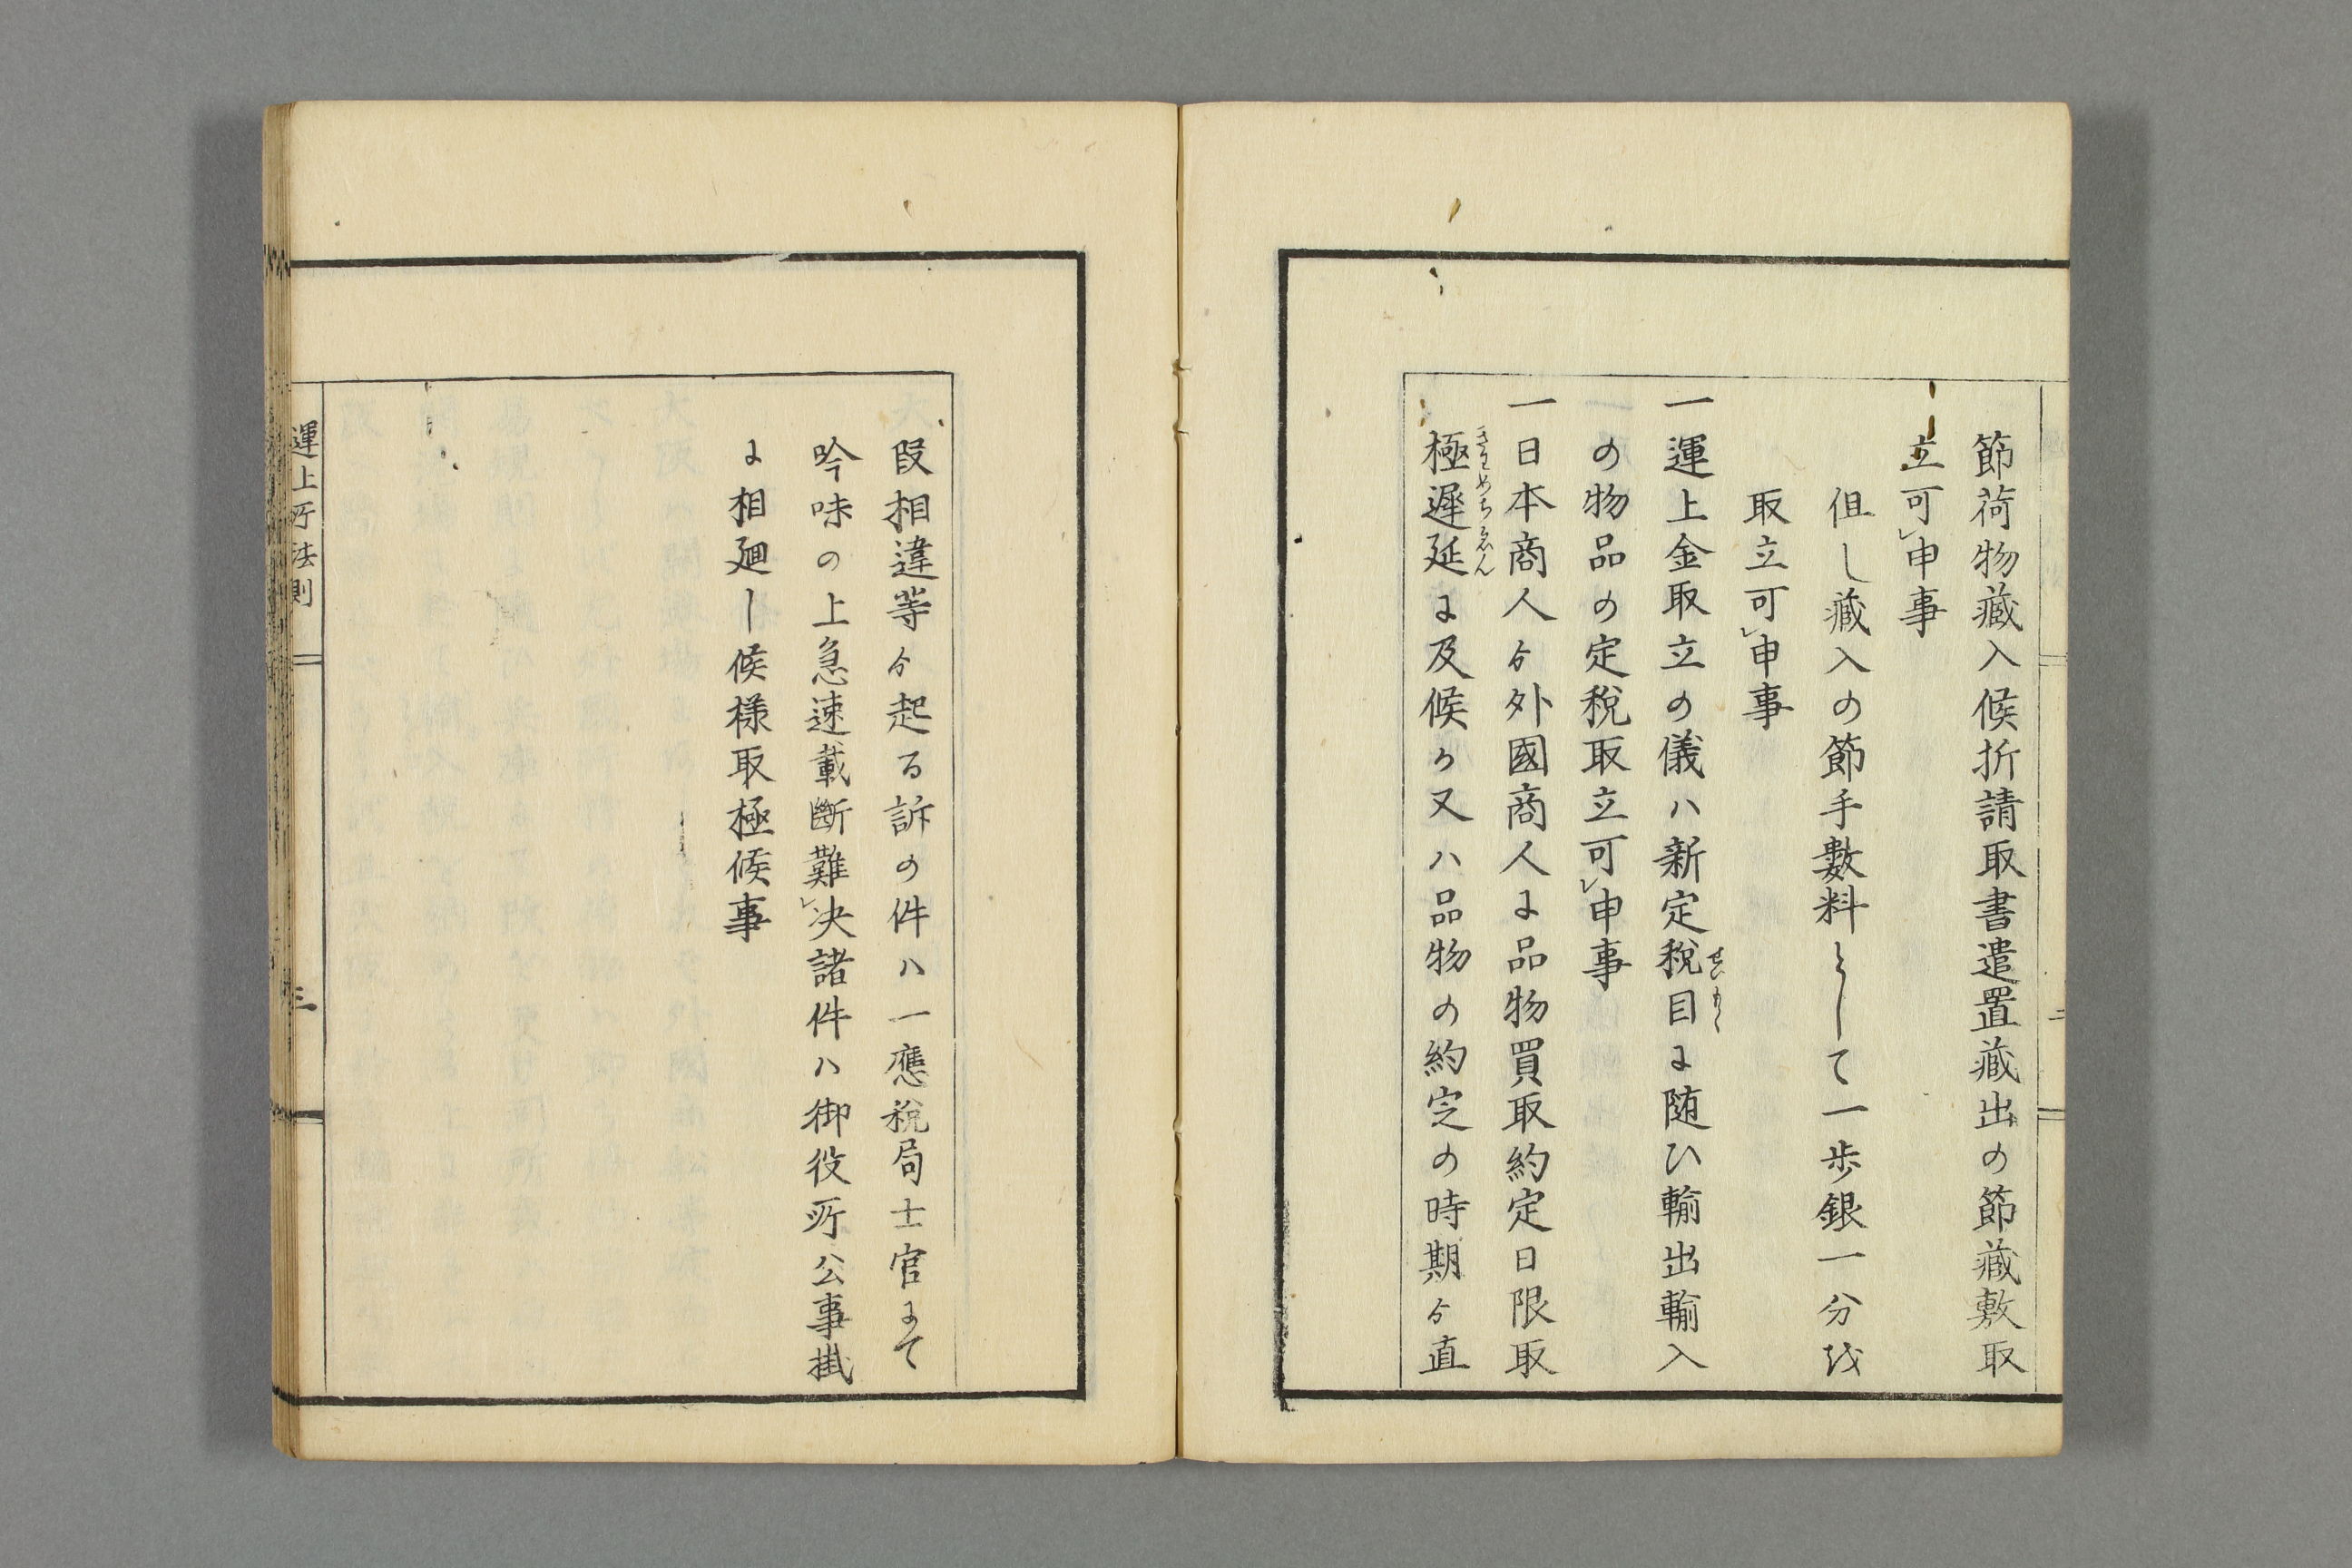 節荷物藏入候折請取書遣置藏出の節藏敷取
立可レ申事
但し藏入の節手數料として一歩銀一分づゝ
取立可レ申事
一運上金取立の儀ハ新定稅目に随ひ輸出輸入
せいもく
の物品の定稅取立可レ申事
一日本商人ゟ外國商人に品物買取約定日限取
極遲延に及候か又ハ品物の約定の時期ゟ直
きわめちゑん
段相違等ゟ起る訴の件ハ一應稅局士官にて
吟味の上急速載斷難レ决諸件ハ御役所公事掛
に相廻し候様取極候事
運上所法則
三